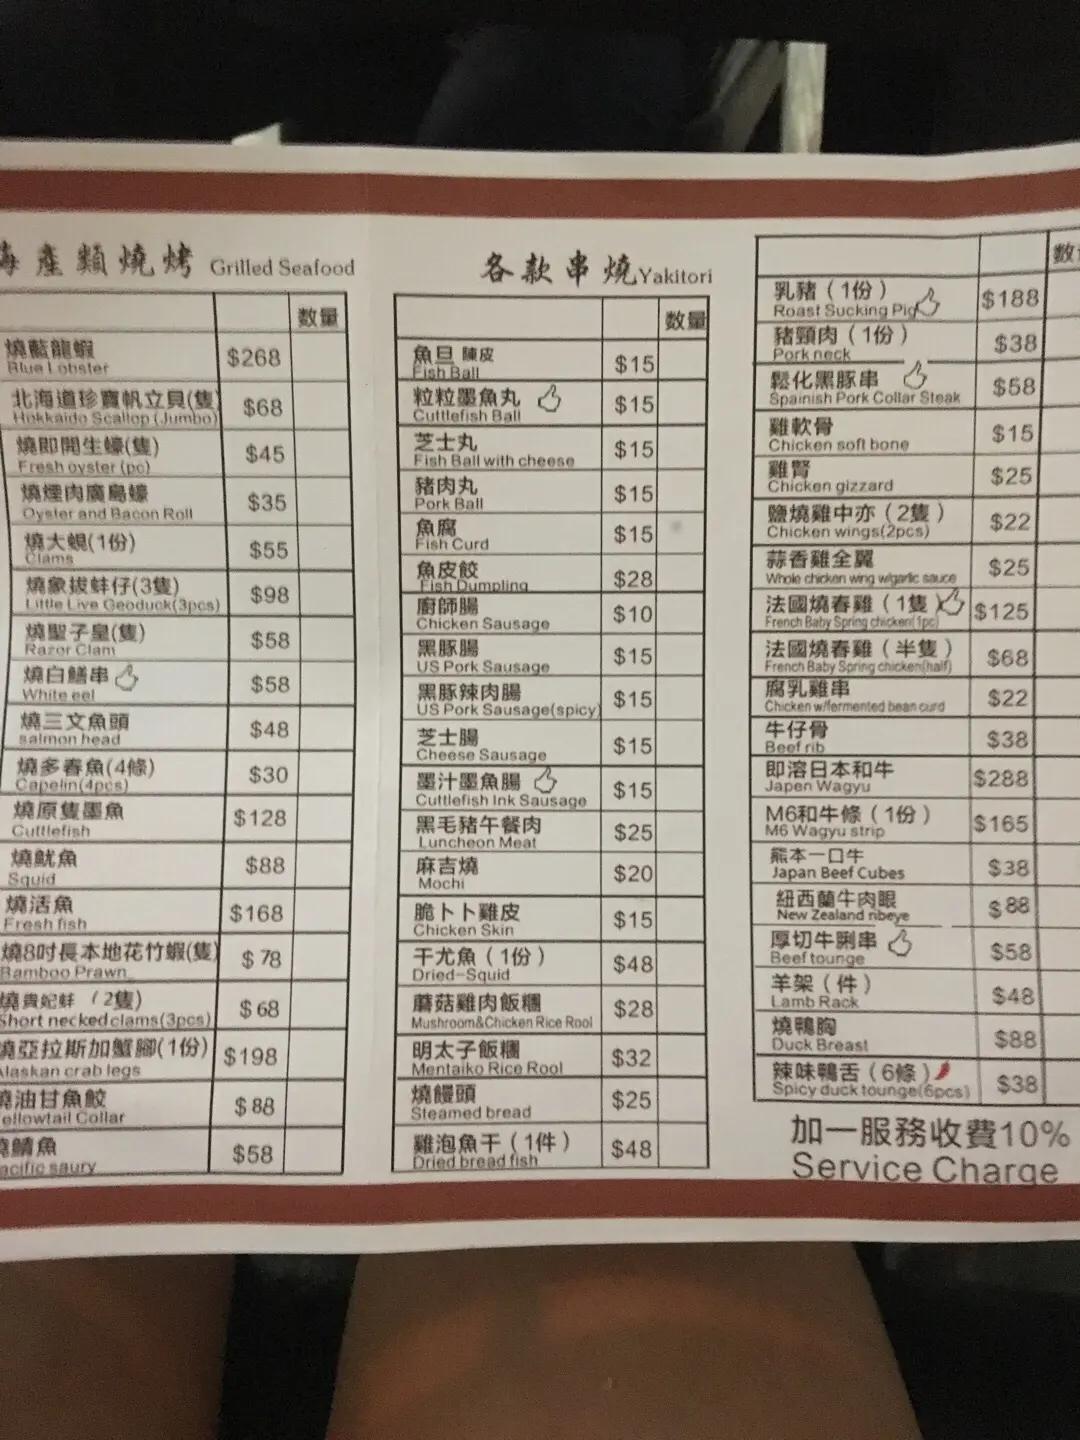 海產類燒烤 Grilled Seafood
数量
燒藍龍蝦 $268
Blue Lobster
北海道珍寶帆立貝(隻) $68
Hokkaido Scallop (Jumbo)
燒即開生蠔(隻) $45
Fresh oyster (pc)
燒煙肉廣島蠔 $35
Oyster and Bacon Roll
燒大蜆(1份) $55
Clams
燒象拔蚌仔(3隻) $98
Little Live Geoduck(3pcs)
燒聖子皇(隻) $58
Razor Clam
燒白鱔串 $58
White eel
燒三文魚頭 $48
salmon head
燒多春魚(4條) $30
Capelin(4pcs)
燒原隻墨魚 $128
Cuttlefish
燒魷魚 $88
Squid
燒活魚 $168
Fresh fish
燒8吋長本地花竹蝦(隻) $78
Bamboo Prawn
燒貴妃蚌 (2隻) $68
Short necked clams(3pcs)
燒亞拉斯加蟹腳(1份) $198
Alaskan crab legs
燒油甘魚鮫 $88
ellowtail Collar
燒鯖魚 $58
acific saury
各款串燒 Yakitori
数量
魚旦 陳皮 $15
Fish Ball
粒粒墨魚丸 $15
Cuttlefish Ball
芝士丸 $15
Fish Ball with cheese
豬肉丸 $15
Pork Ball
魚腐 $15
Fish Curd
魚皮餃 $28
Fish Dumpling
廚師腸 $10
Chicken Sausage
黑豚腸 $15
US Pork Sausage
黑豚辣肉腸 $15
US Pork Sausage(spicy)
芝士腸 $15
Cheese Sausage
墨汁墨魚腸 $15
Cuttlefish Ink Sausage
黑毛豬午餐肉 $25
Luncheon Meat
麻吉燒 $20
Mochi
脆卜卜雞皮 $15
Chicken Skin
干尤魚(1份) $48
Dried-Squid
蘑菇雞肉飯糰 $28
Mushroom&Chicken Rice Rool
明太子飯糰 $32
Mentaiko Rice Rool
燒饅頭 $25
Steamed bread
雞泡魚干(1件) $48
Dried bread fish
数
乳豬(1份) $188
Roast Sucking Pig
豬頸肉(1份) $38
Pork neck
鬆化黑豚串 $58
Spainish Pork Collar Steak
雞軟骨 $15
Chicken soft bone
雞腎 $25
Chicken gizzard
鹽燒雞中亦(2隻) $22
Chicken wings(2pcs)
蒜香雞全翼 $25
Whole chicken wing w/garlic sauce
法國燒春雞(1隻) $125
French Baby Spring chicken(1pc)
法國燒春雞(半隻) $68
French Baby Spring chicken(half)
腐乳雞串 $22
Chicken w/fermented bean curd
牛仔骨 $38
Beef rib
即溶日本和牛 $288
Japen Wagyu
M6和牛條(1份) $165
M6 Wagyu strip
熊本一口牛 $38
Japan Beef Cubes
紐西蘭牛肉眼 $88
New Zealand ribeye
厚切牛脷串 $58
Beef tounge
羊架(件) $48
Lamb Rack
燒鴨胸 $88
Duck Breast
辣味鴨舌(6條) $38
Spicy duck tounge(6pcs)
加一服務收費10%
Service Charge